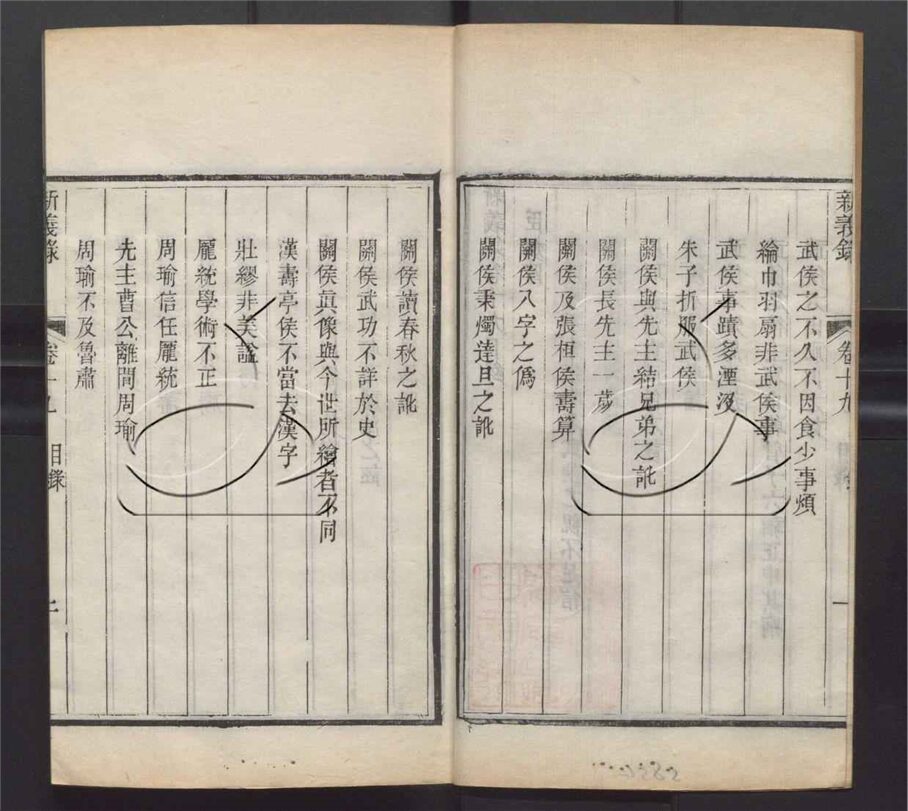 新義錄
卷十九
一
武侯之不久不因食少事煩
綸巾羽扇非武侯事
武侯事蹟多湮沒
朱子折服武侯
關侯與先主結兄弟之訛
關侯長先主一歲
關侯及張桓侯壽算
關侯八字之僞
關侯秉燭達旦之訛
關侯讀春秋之訛
關侯武功不詳於史
關侯眞像與今世所繪者不同
漢壽亭侯不當去漢字
壯繆非美諡
龐統學術不正
周瑜信任龐統
先主曹公離間周瑜
周瑜不及魯肅
新義錄
卷十九
目錄